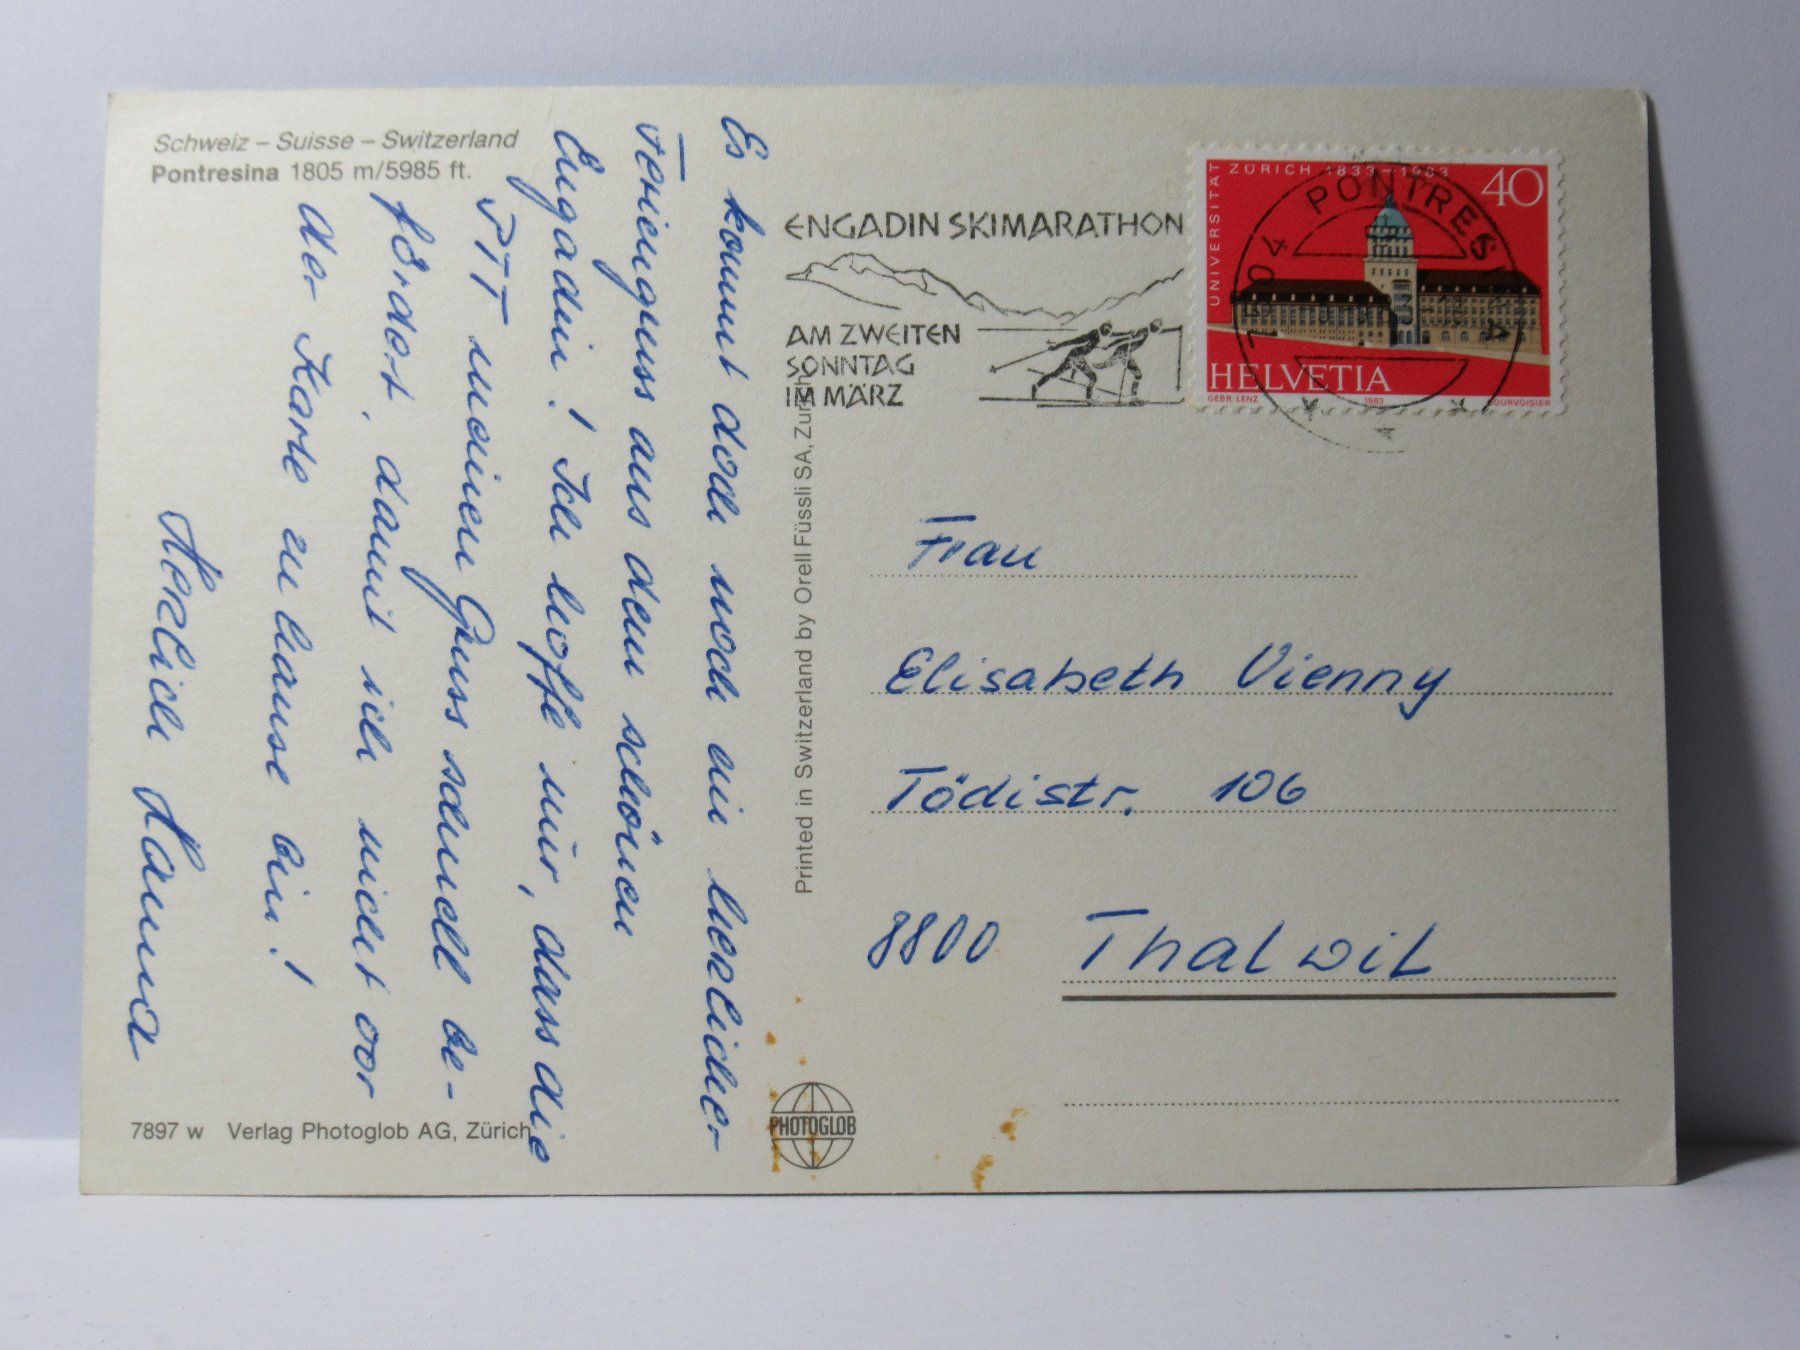 Schweiz – Suisse – Switzerland
Pontresina 1805 m/5985 ft.
Es kommt doch noch ein herzlicher
Feriengruss aus dem schönen
Engadin! Ich hoffe nur, dass die
PTT meinen Gruss schnell be-
fördert, damit ich nicht vor
der Karte zu hause bin!
Herzlich Hanna
7897 w Verlag Photoglob AG, Zürich
Printed in Switzerland by Orell Füssli SA, Zürich
PHOTOGLOB
ENGADIN SKIMARATHON
AM ZWEITEN
SONNTAG
IM MÄRZ
UNIVERSITÄT ZÜRICH 1833–1983
40
HELVETIA
GEBR. LENZ 1983 COURVOISIER
7504 PONTRESINA
Frau
Elisabeth Vienny
Tödistr. 106
8800 Thalwil